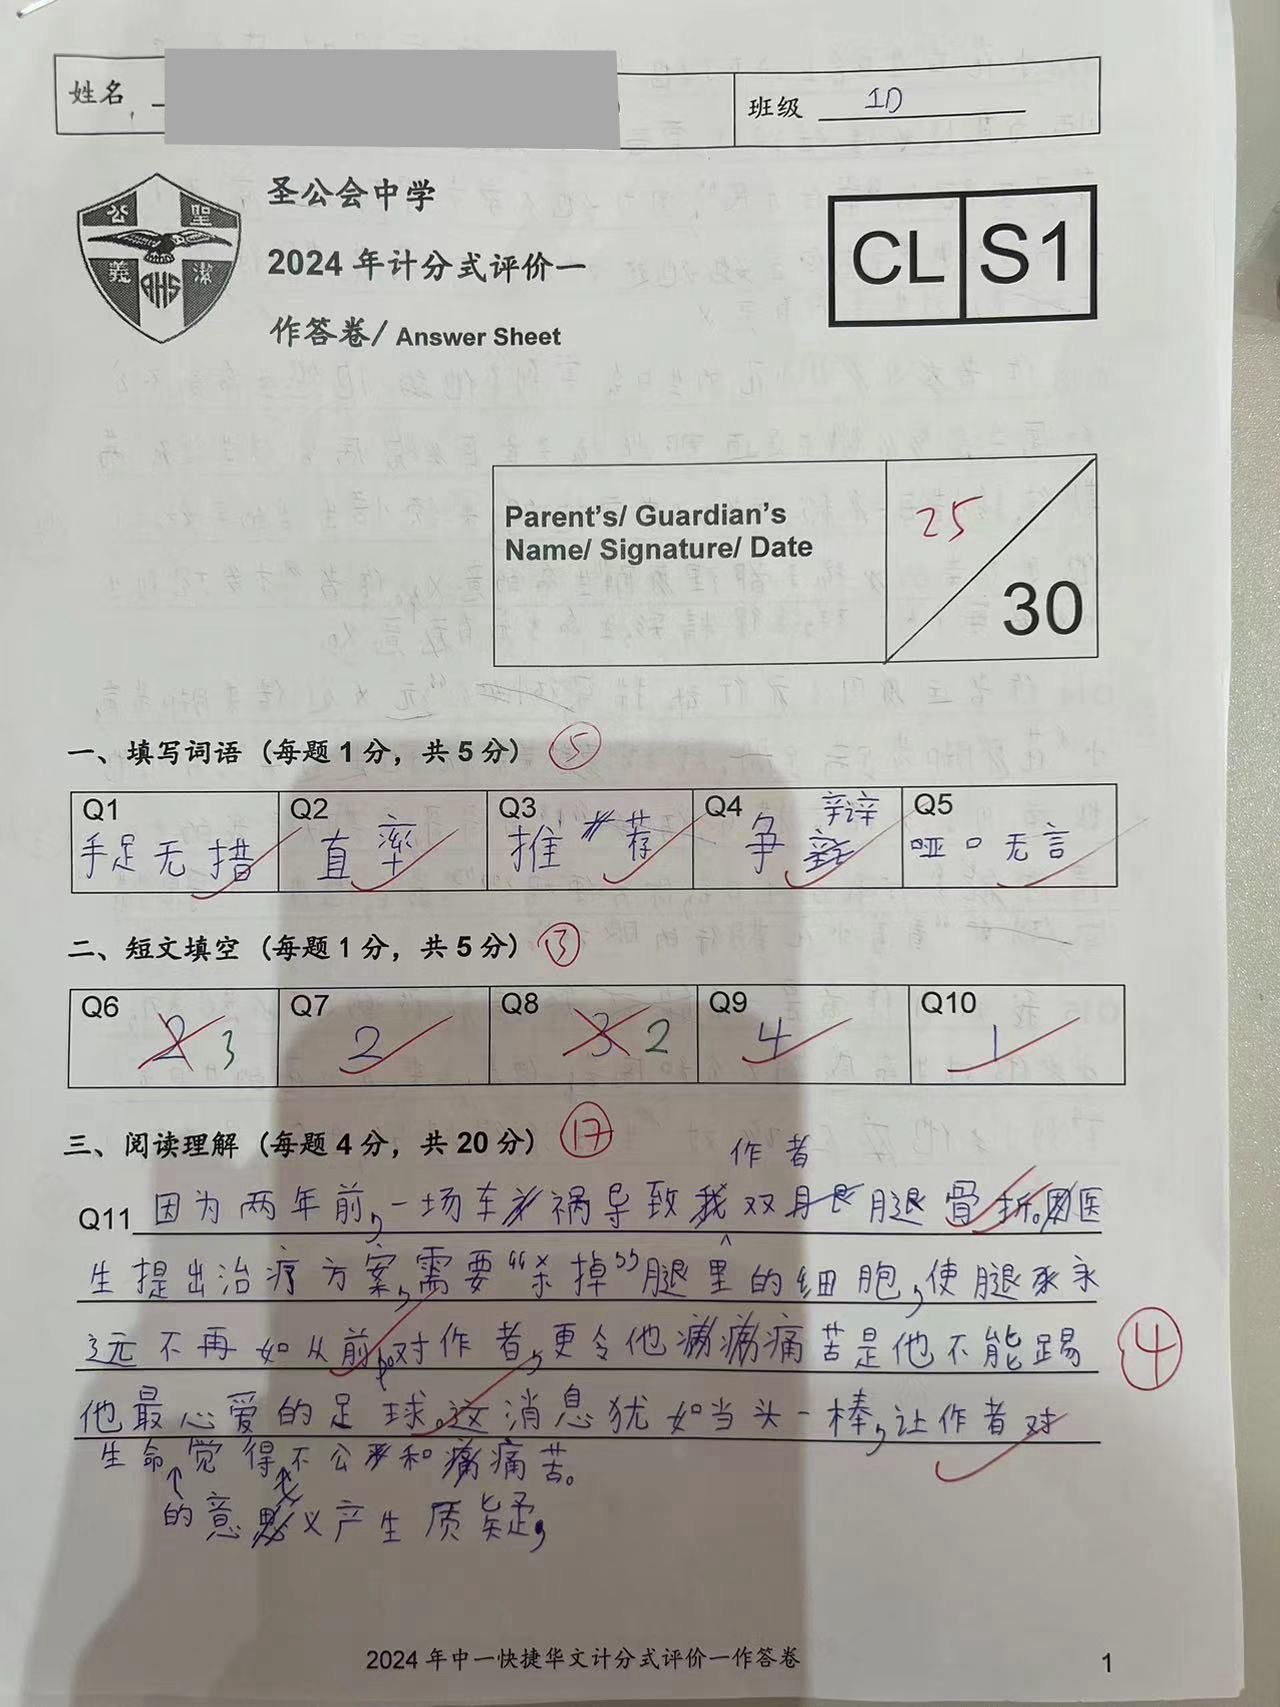 姓名
班级 1D
公 聖
義 潔
AHS
圣公会中学
2024 年计分式评价一
作答卷/ Answer Sheet
CL S1
Parent's/ Guardian's
Name/ Signature/ Date
25
30
一、填写词语（每题 1 分，共 5 分） 5
Q1 Q2 Q3 Q4 Q5
手足无措 直率 推荐 争辩 哑口无言
二、短文填空（每题 1 分，共 5 分） 3
Q6 Q7 Q8 Q9 Q10
2 3 2 3 2 4 1
三、阅读理解（每题 4 分，共 20 分） 17
作者
Q11 因为两年前，一场车祸导致我双腿骨折。医
生提出治疗方案，需要“杀掉”腿里的细胞，使腿永
远不再如从前。对作者，更令他痛苦是他不能踢
他最心爱的足球。这消息犹如当头一棒，让作者对
4
生命觉得不公和痛苦。
的意义产生质疑，
2024 年中一快捷华文计分式评价一作答卷
1